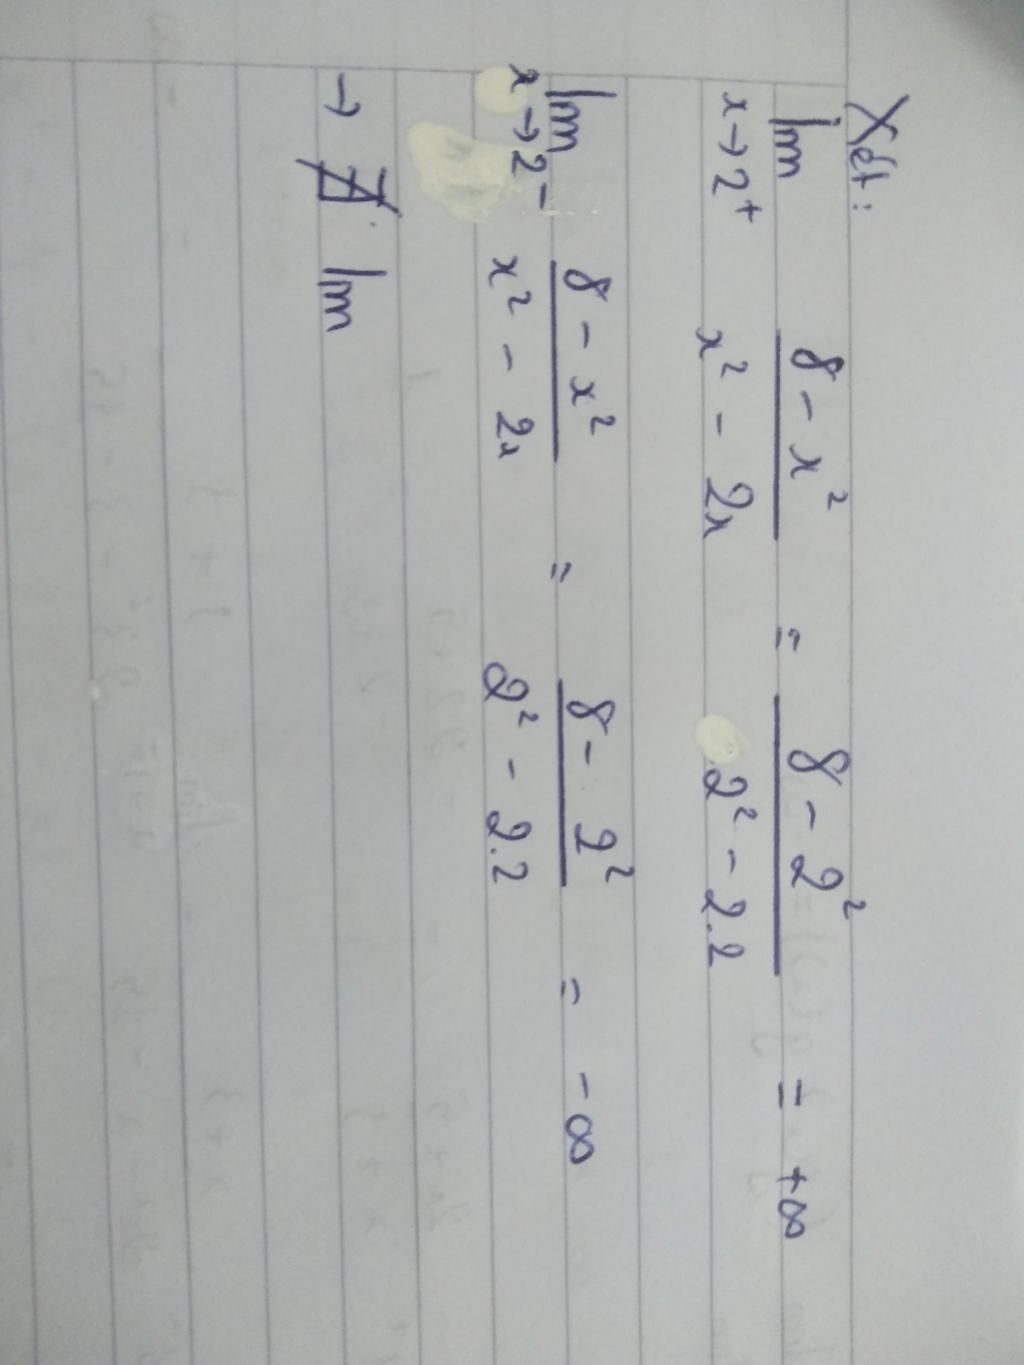 Xét:
lim x→2⁺ (8 - x²)/(x² - 2x) = (8 - 2²)/(2² - 2.2) = +∞
lim x→2⁻ (8 - x²)/(x² - 2x) = (8 - 2²)/(2² - 2.2) = -∞
→ ∄ lim